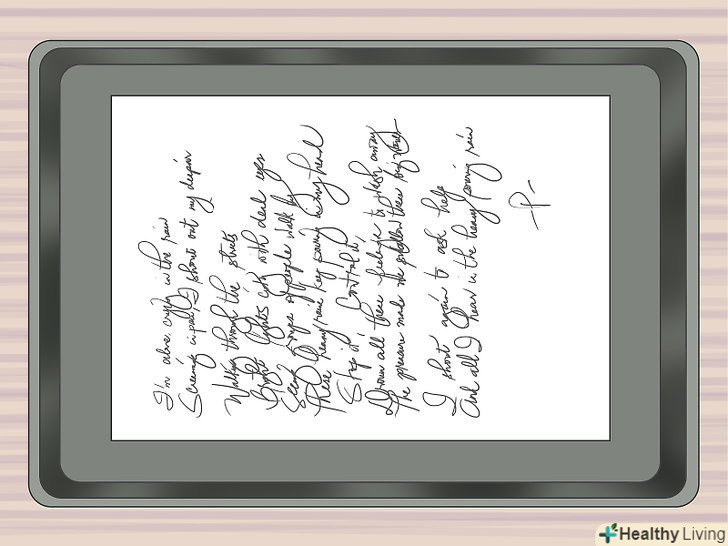 I'm alone, crying in the rain
Screaming in pain, I shout out my despair
Walking through the streets
Bright lights with dead eyes
Seeing groups of people walk by
These heavy rains keep pouring in my head
Stop it! Control it,
Drown all these feelings to wash away
The pressure made me swallow these
I shout again to ask help
And all I hear is the heavy pouring rain
-P-
Healthy Living